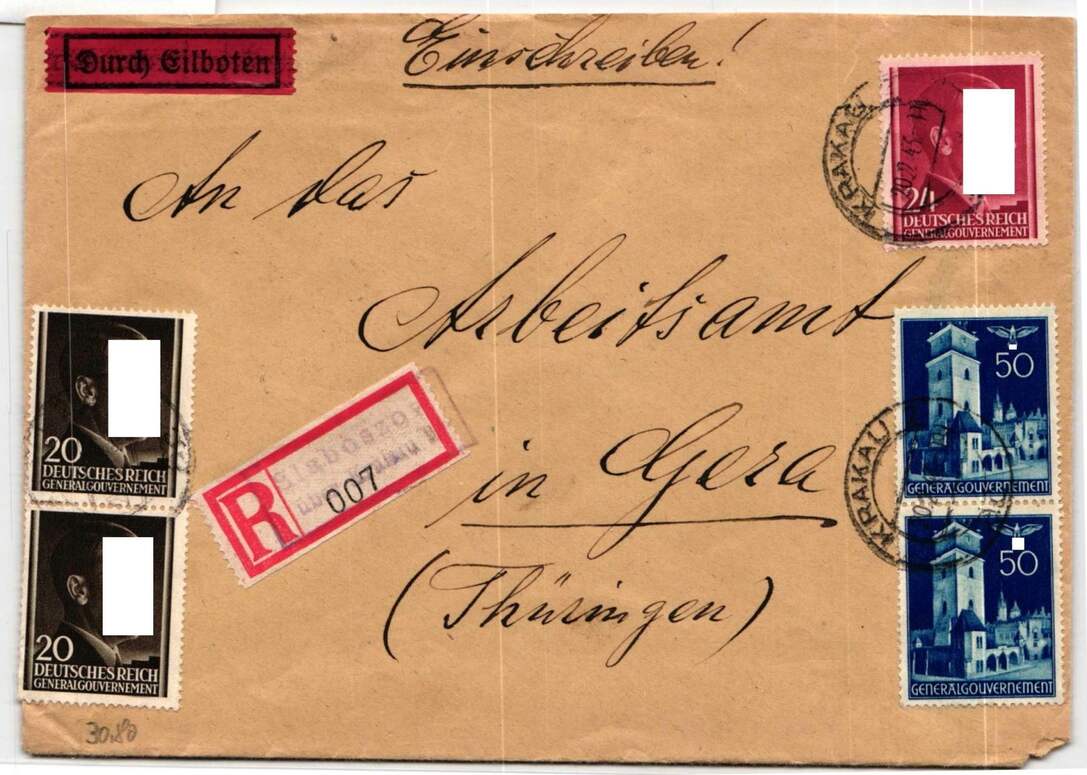 Durch Eilboten
Einschreiben!
KRAKAU
24
DEUTSCHES REICH
GENERALGOUVERNEMENT
An das
Arbeitsamt
in Gera
(Thüringen)
20
DEUTSCHES REICH
GENERALGOUVERNEMENT
20
DEUTSCHES REICH
GENERALGOUVERNEMENT
R
007
50
GENERALGOUVERNEMENT
KRAKAU
50
GENERALGOUVERNEMENT
30,80